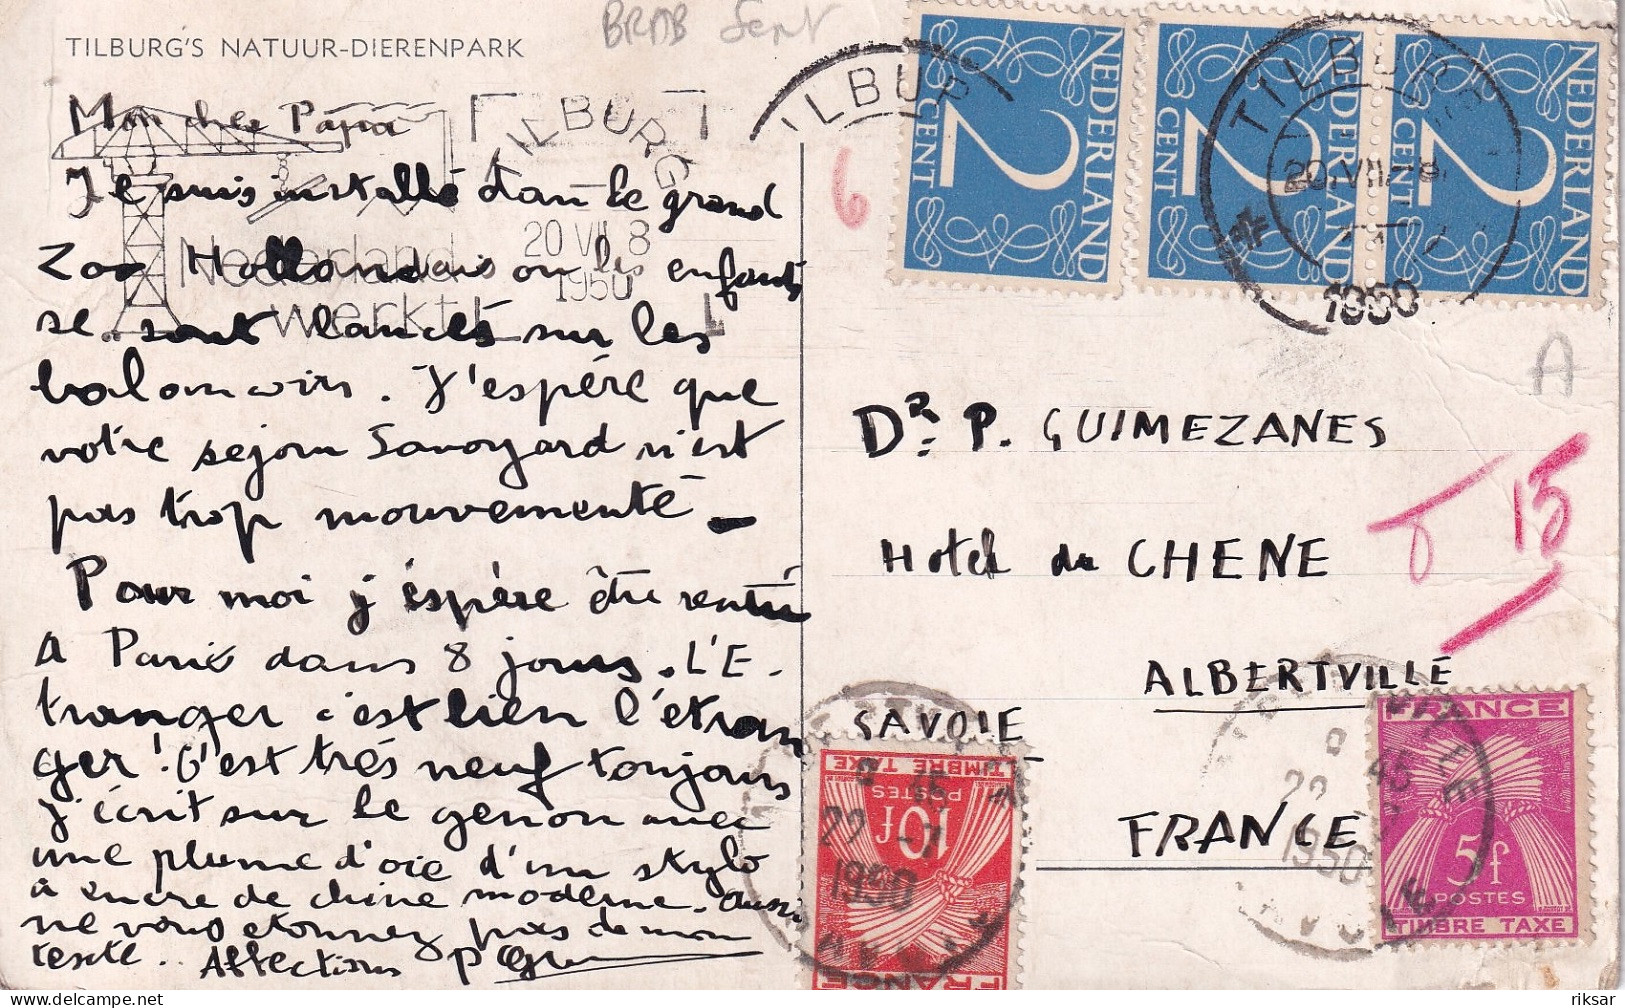 BRAB
TILBURG'S NATUUR-DIERENPARK
Mon cher Papa
Je suis installé dans le grand
Zoo Hollandais ou les enfants
se sont lancés sur les
balançoires. J'espére que
votre sejour Savoyard n'est
pas trop mouvementé –
Pour moi j'éspère être rentré
A Paris dans 8 jours. L'E-
tranger c'est bien l'étran
ger! C'est très neuf toujours
j'écrit sur le genou avec
une plume d'oie d'un stylo
à encre de chine moderne. Aussi
ne vous etonnez pas de mon
texte. Affections
TILBURG
20 VII 8
1950
Nederland
werkt!
6
NEDERLAND
2
CENT
NEDERLAND
2
CENT
NEDERLAND
2
CENT
TILBURG
20.VII
1950
A
Dr. P. GUIMEZANES
T 15
Hotel du CHENE
ALBERTVILLE
SAVOIE
FRANCE
FRANCE
10f
POSTES
TIMBRE TAXE
22 -7
1950
FRANCE
5f
POSTES
TIMBRE TAXE
ALBERTVILLE
45
22
1950
SAVOIE
riksar delcampe.net